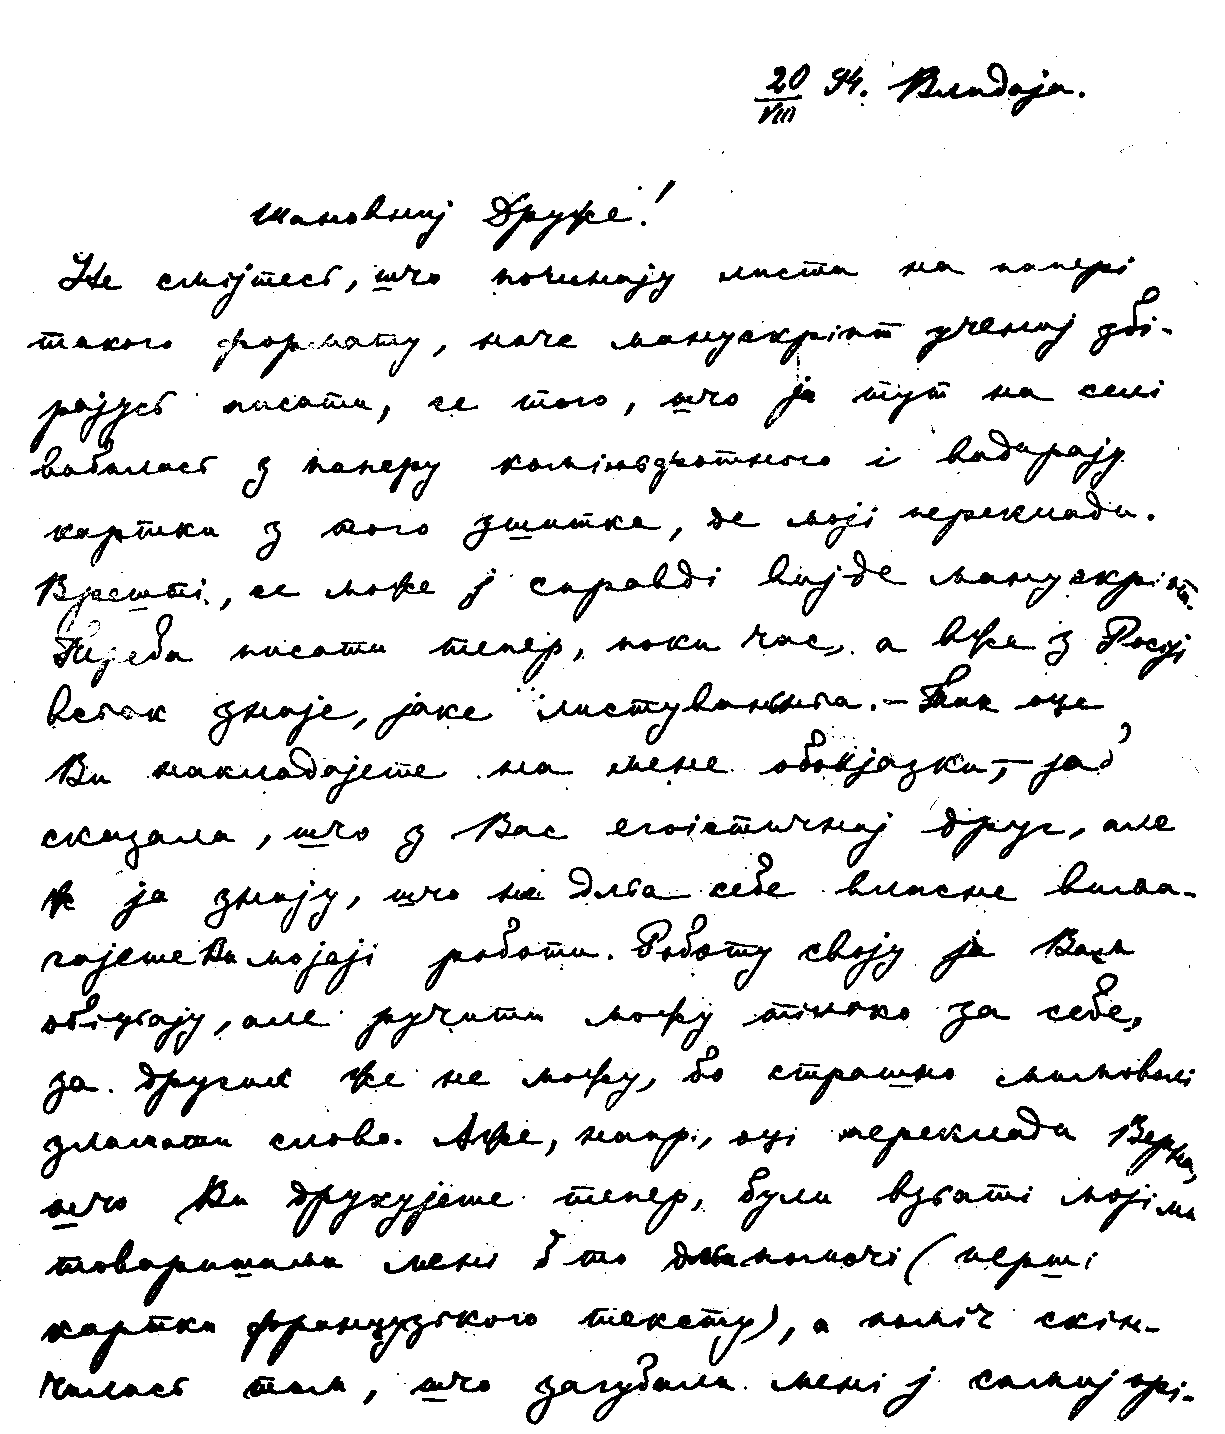 20/VIII 94. Владаја.
Шановниј Друже!
Не смијтесь, шчо починају листа на папері
такого формату, наче манускріпт учениј збі-
рајусь писати, се того, шчо ја тут на селі
вибилась з паперу і видирају
картки з того зшитка, де мојі переклади.
Врешті, се може ј справді вијде манускріпт.
Треба писати тепер, поки час, а вже з Росіјі
всьак знаје, јаке листуваньньа. – Так оце
Ви накладајете на мене обовјазки, – ја б
сказала, шчо з Вас егоістичниј друг, але
ж ја знају, шчо не дльа себе власне вима-
гајете Ви мојејі роботи. Роботу своју ја Вам
обіцьају, але ручити можу тілько за себе,
за других же не можу, бо страшно мимоволі
зламати слово. Аже, напр., оці переклади Верна,
шчо Ви друкујете тепер, були взьаті мојіми
товаришами мені б то дльа помочі (перші
картки французського тексту), а поміч скін-
чилась тим, шчо загубили мені ј самиј орі-